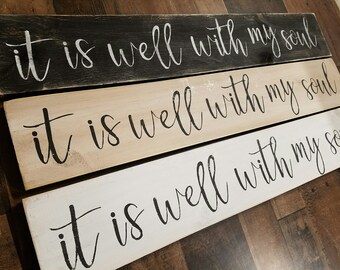 it is well with my soul
it is well with my soul
it is well with my so